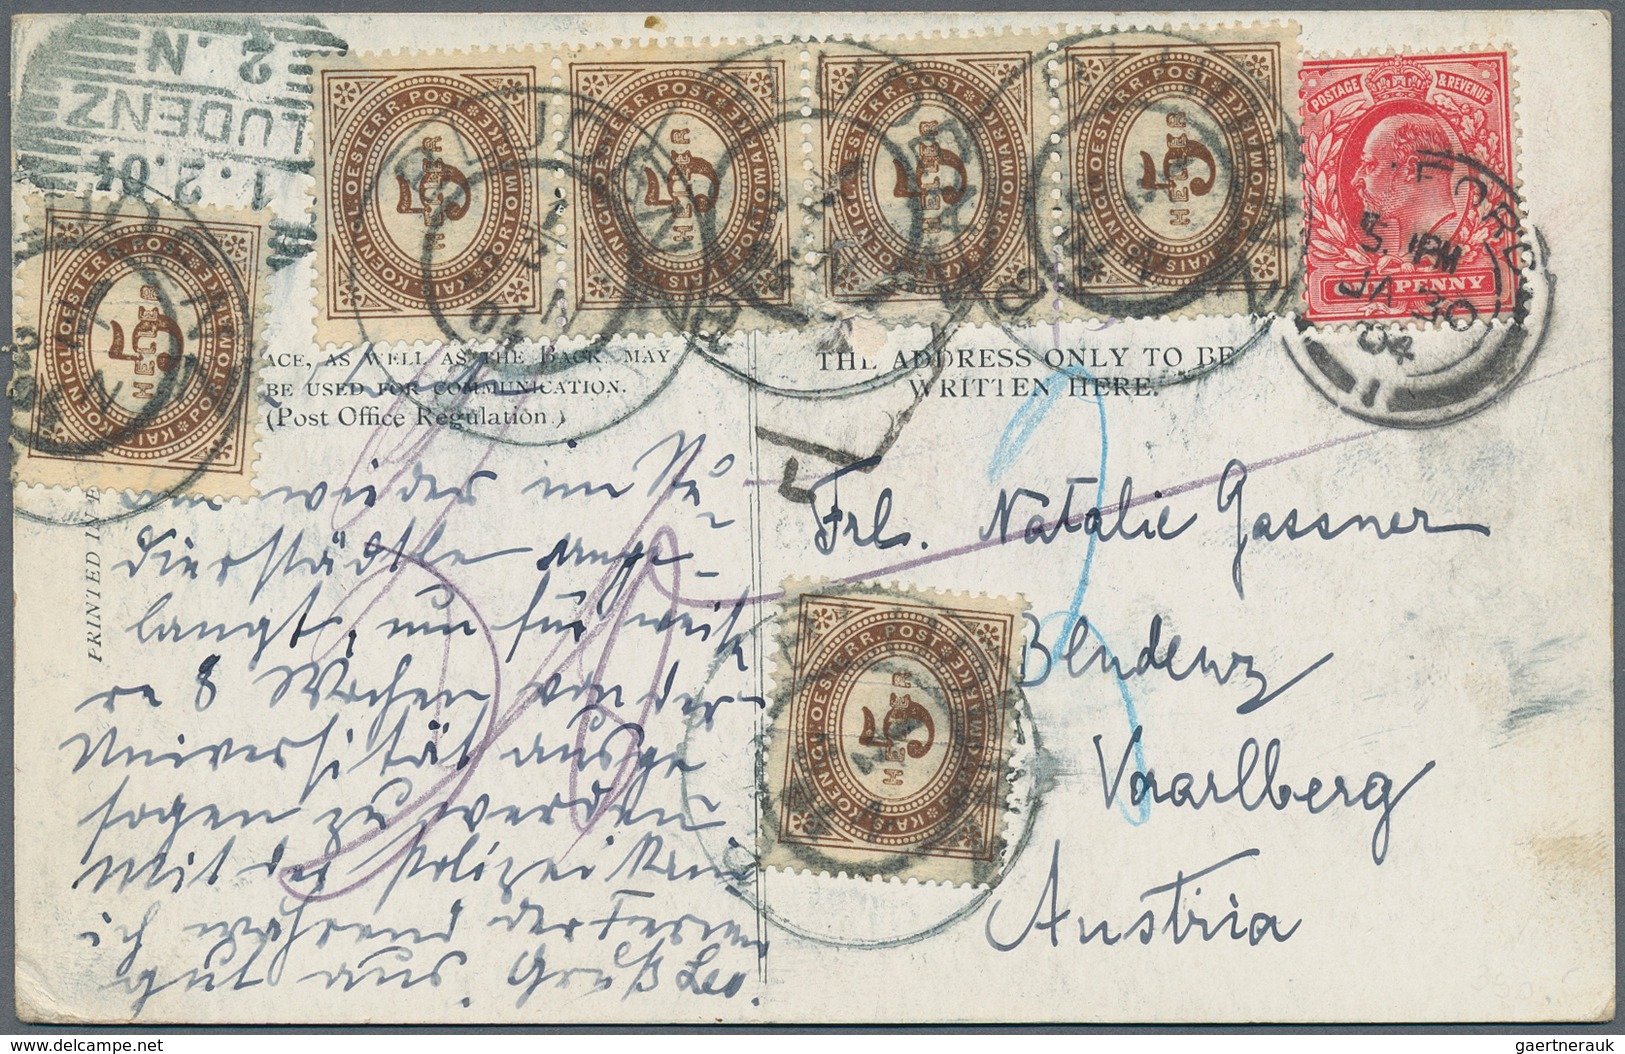 2. N
LUDENZ
1.2.04
KAIS. KOENIGL. OESTERR. POST PORTOMARKE
5
HELLER
KAIS. KOENIGL. OESTERR. POST PORTOMARKE
5
HELLER
KAIS. KOENIGL. OESTERR. POST PORTOMARKE
5
HELLER
KAIS. KOENIGL. OESTERR. POST PORTOMARKE
5
HELLER
POSTAGE & REVENUE
PENNY
5. 1PM
JA 30
04
1
KAIS. KOENIGL. OESTERR. POST PORTOMARKE
5
HELLER
ACE, AS WELL AS THE BACK, MAY
BE USED FOR COMMUNICATION.
(Post Office Regulation.)
THE ADDRESS ONLY TO BE
WRITTEN HERE.
PRINTED IN
wieder im Stu-
dierstädtle ange-
langt, um für weite-
re 8 Wochen von der
Universität ausge
sogen zu werden.
Mit der Polizei kam
ich während der Ferien
gut aus. Gruß Leo.
Frl. Natalie Gassner
Bludenz
Vorarlberg
Austria
KAIS. KOENIGL. OESTERR. POST PORTOMARKE
5
HELLER
delcampe.net
gaertnerauk